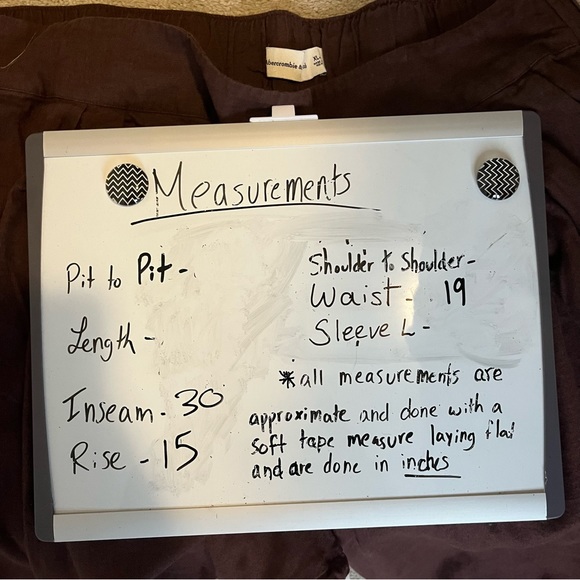 Abercrombie & Fitch
XL
Measurements
Pit to Pit -
Length -
Inseam - 30
Rise - 15
Shoulder to Shoulder -
Waist - 19
Sleeve L -
*all measurements are
approximate and done with a
soft tape measure laying flat
and are done in inches